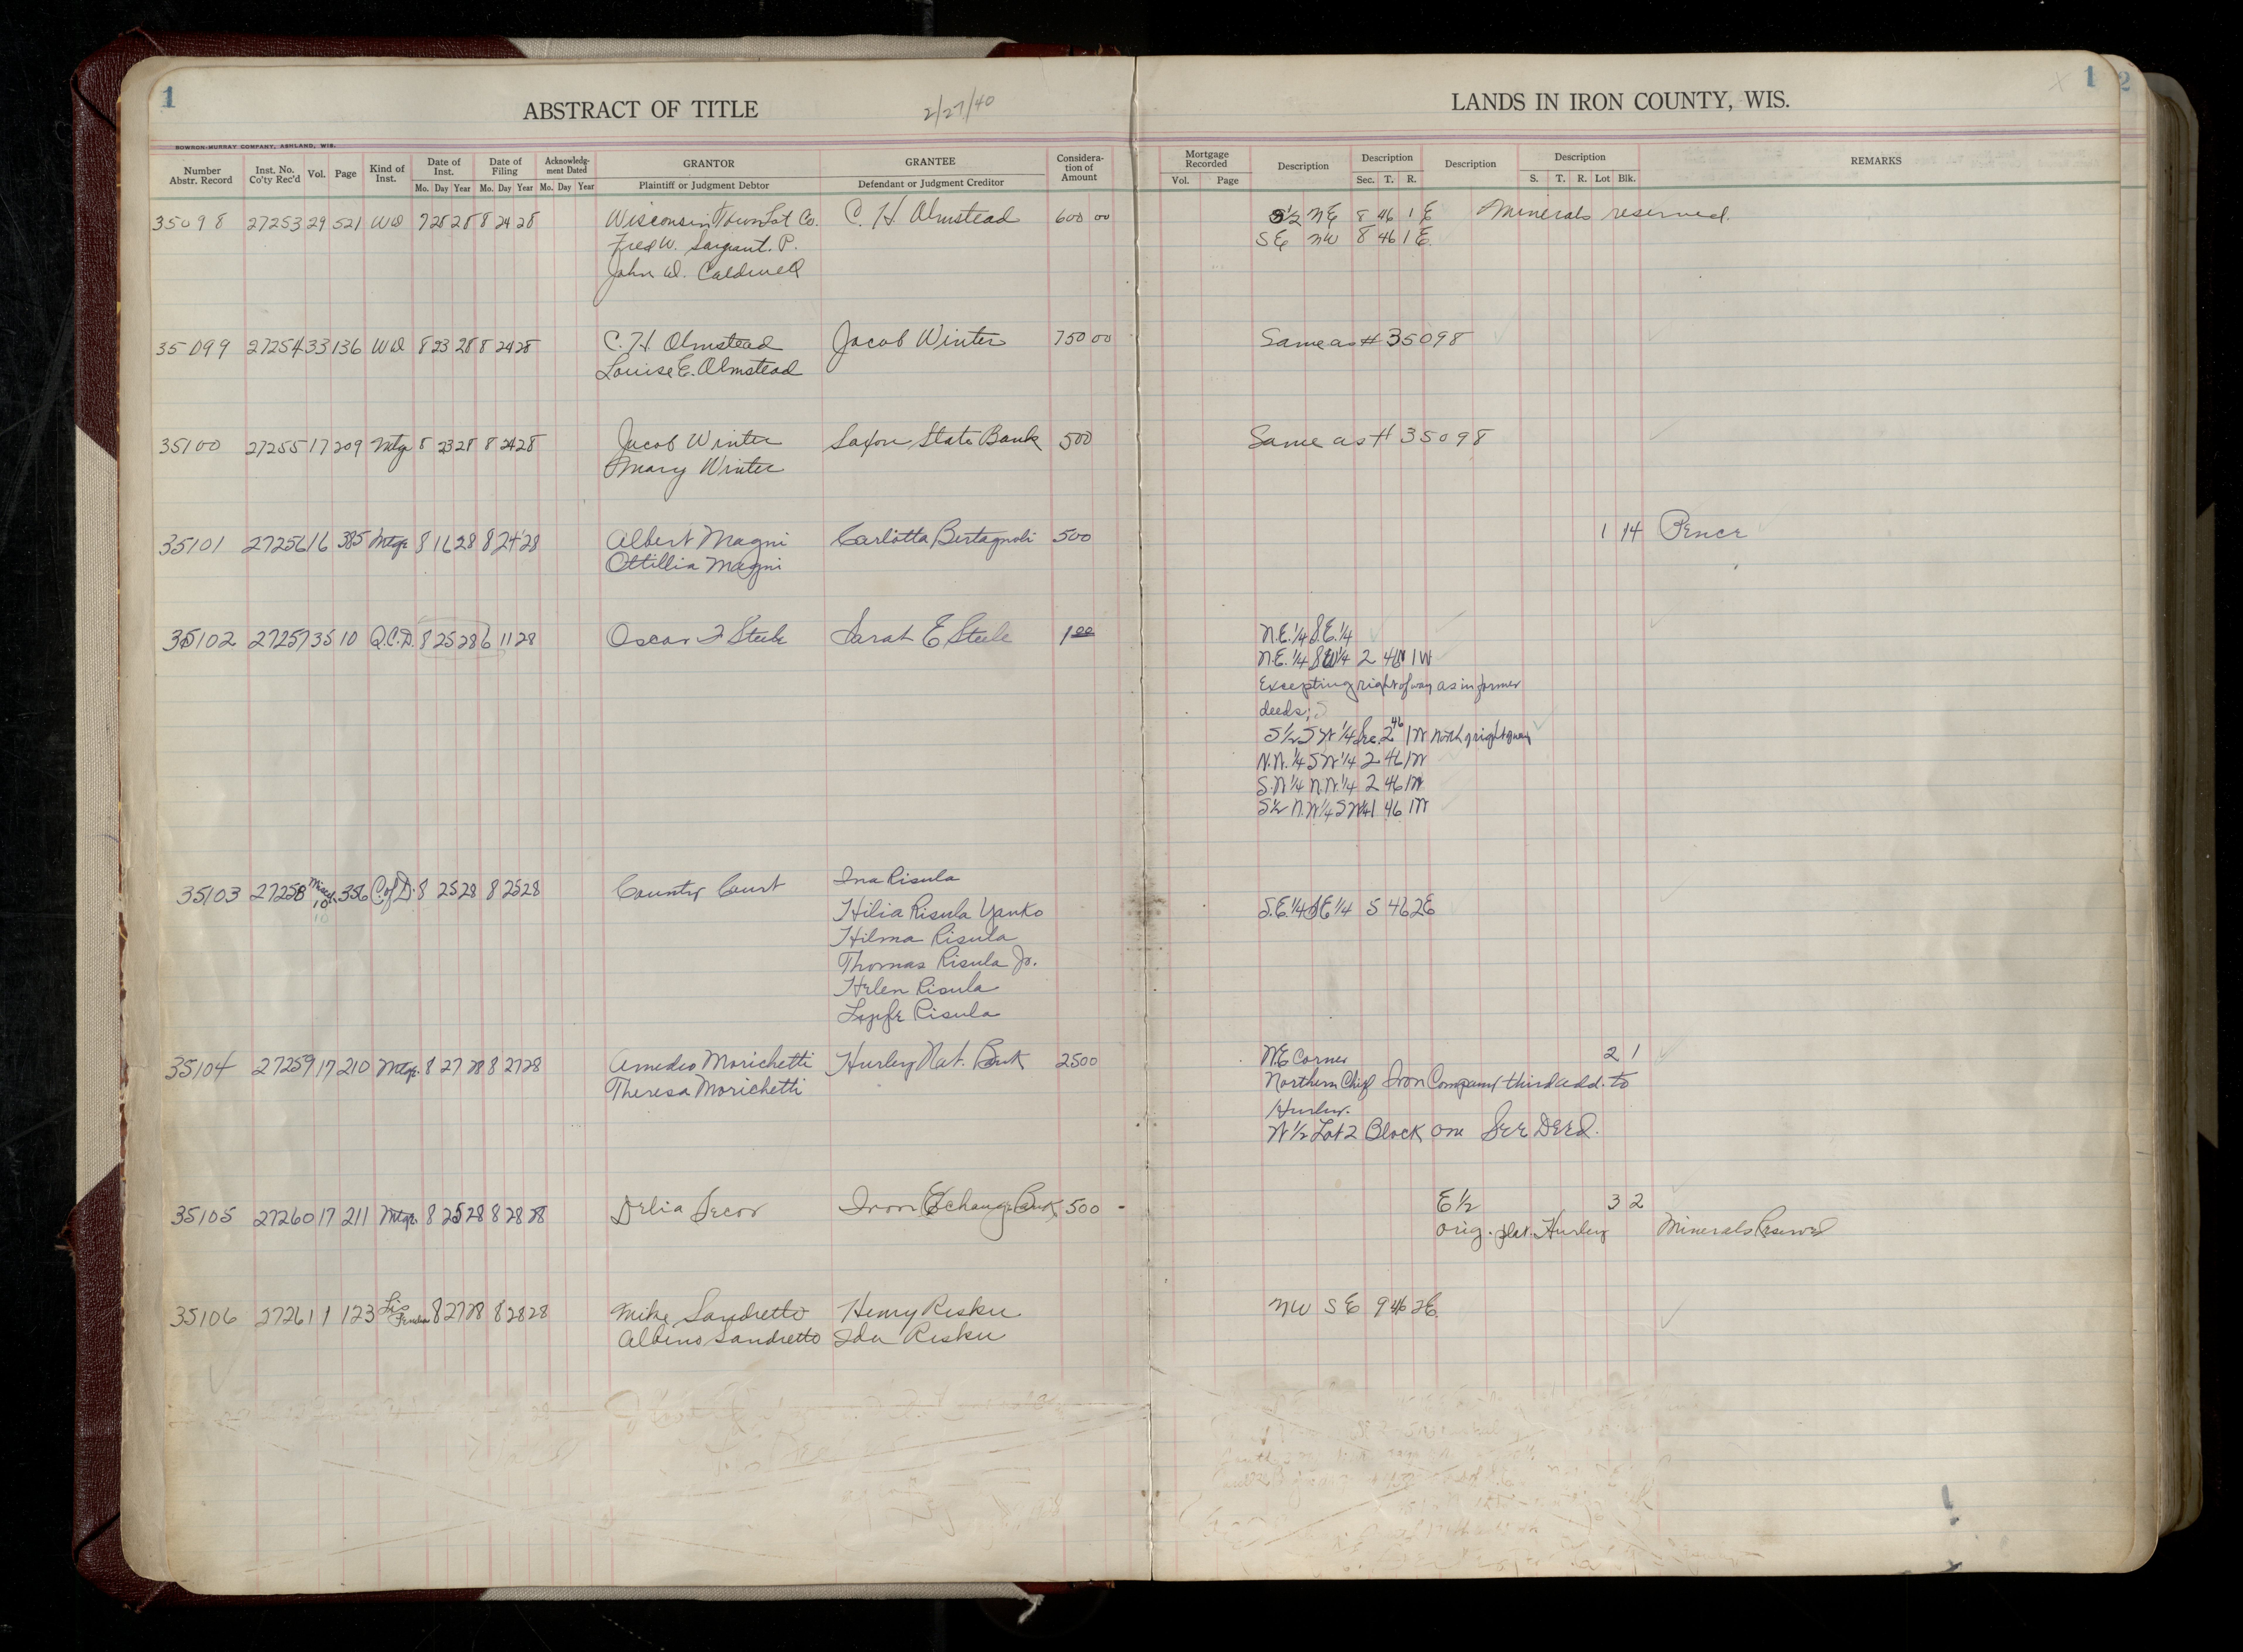 1
ABSTRACT OF TITLE 2/27/40
LANDS IN IRON COUNTY, WIS. 1 2
BOWRON-MURRAY COMPANY, ASHLAND, WIS.
Number Abstr. Record Inst. No. Co'ty Rec'd Vol. Page Kind of Inst. Date of Inst. Mo. Day Year Date of Filing Mo. Day Year Acknowledg-ment Dated Mo. Day Year GRANTOR Plaintiff or Judgment Debtor GRANTEE Defendant or Judgment Creditor Considera-tion of Amount
Mortgage Recorded Vol. Page Description Description Sec. T. R. Description Description S. T. R. Lot Blk. REMARKS
35098 27253 29 521 WD 7 25 28 8 24 28 Wisconsin Town Lot Co. C. H Olmstead 600 00 S1/2 NE 8 46 1 E Minerals reserved
Fred W. Sargent. P. SE NW 8 46 1 E.
John D. Caldwell
35099 27254 33 136 WD 8 23 28 8 24 28 C. H Olmstead Jacob Winter 750 00 Same as # 35098
Louise E. Olmstead
35100 27255 17 209 Mtge 8 23 28 8 24 28 Jacob Winter Saxon State Bank 500 Same as # 35098
Mary Winter
35101 27256 16 385 Mtge 8 16 28 8 24 28 Albert Magni Carlotta Bertagnoli 500 1 14 Pence
Ottillia Magni
35102 27257 35 10 Q.C.D. 8 25 28 6 11 28 Oscar F Steele Sarah E Steele 1 00 N.E.1/4 S.E.1/4
N.E.1/4 SW1/4 2 46 1W
Excepting right of way as in former
deeds;
S1/2 SW1/4 Sec. 2 46 1W north of right of way
N.W.1/4 SW1/4 2 46 1W
S.W1/4 N.W.1/4 2 46 1W
S1/2 N.W1/4 SW1/4 1 46 1W
35103 27258 Miscl. 10 356 C.of D. 8 25 28 8 25 28 County Court Ina Risula
10
Hilia Risula Yanko S.E.1/4 SE1/4 5 46 2E
Hilma Risula
Thomas Risula Jr.
Helen Risula
Risula
35104 27259 17 210 Mtge. 8 27 28 8 27 28 Amedeo Morichetti Hurley Nat. Bank 2500 N.E Corner 2 1
Theresa Morichetti Northern Chief Iron Company third add. to
Hurley.
W 1/2 Lot 2 Block one See Deed.
35105 27260 17 211 Mtge. 8 25 28 8 28 28 Delia Secor Iron Exchange Bank 500 - E 1/2 3 2
orig. plat. Hurley Minerals Reserved
35106 27261 1 123 Lis Penden 8 27 28 8 28 28 Mike Sandretto Henry Risku NW SE 9 46 2E.
Albino Sandretto Ida Risku